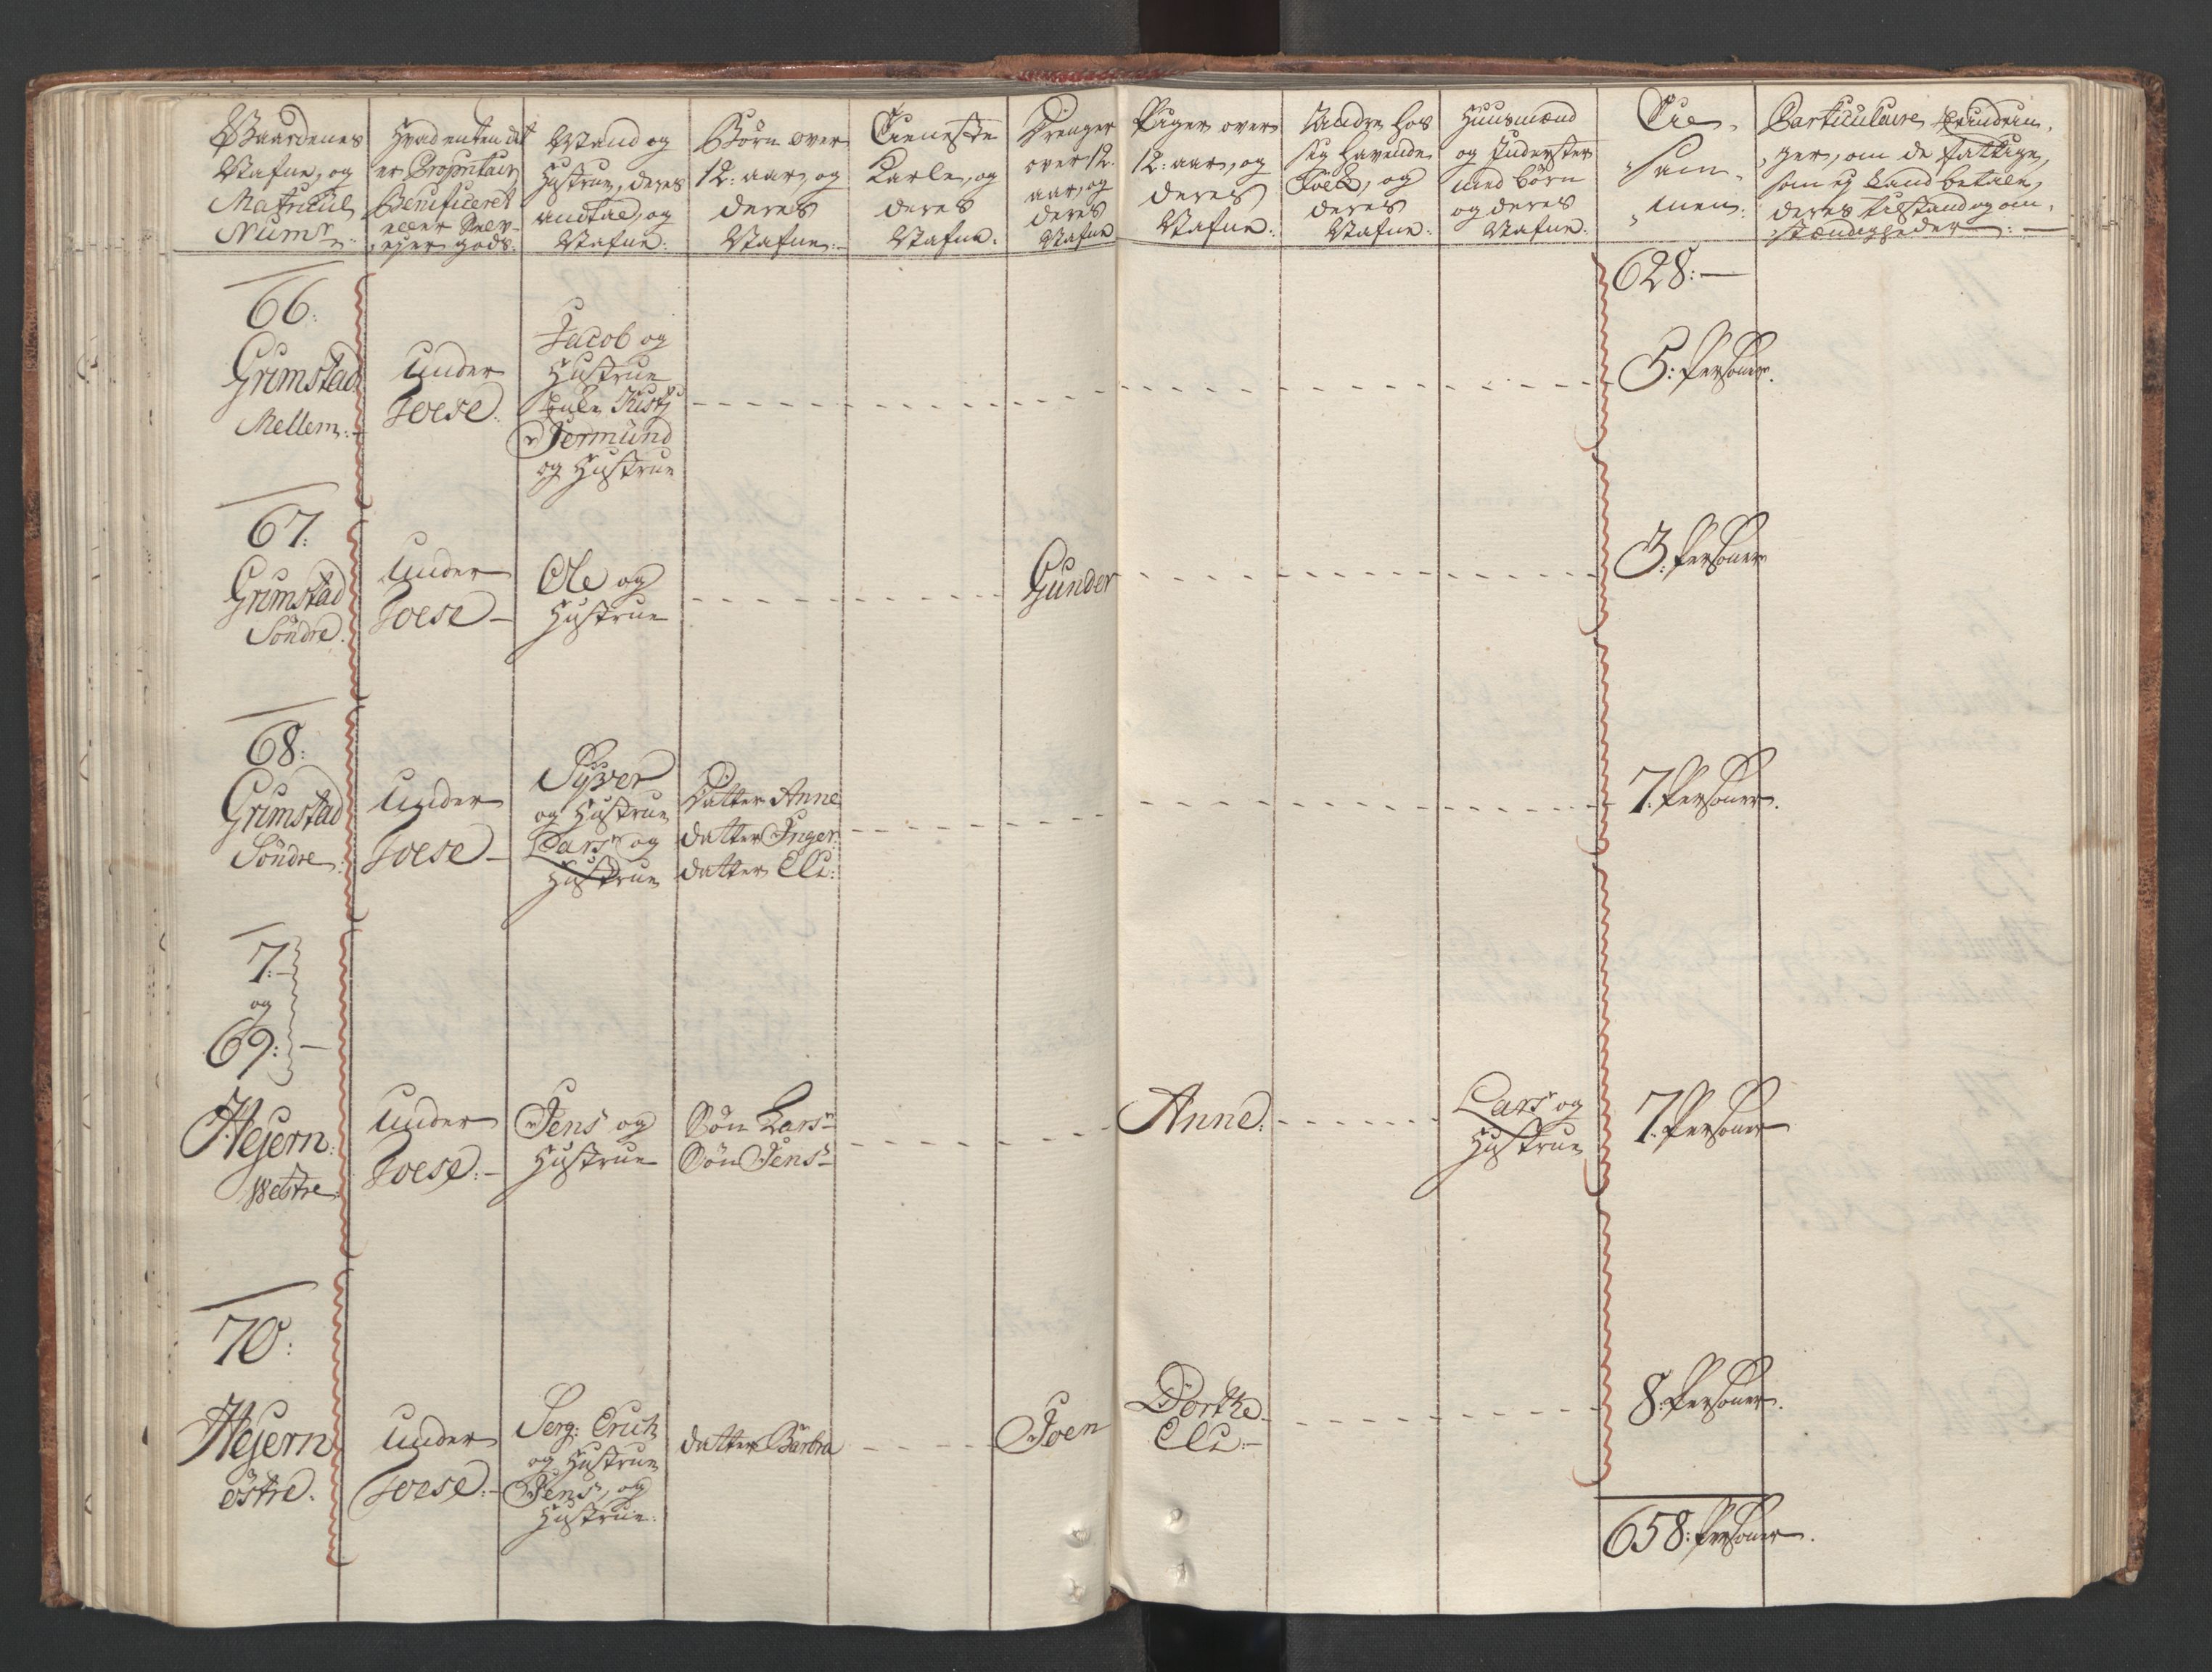 Gaardenes
Nafne, og
Matricul
Numr:
Hvad enten det
er Propritair
Benificeret
eller Selv-
ejer gods:
Mand og
Hustrue, deres
antal, og
Nafne:
Börn over
12: aar, og
deres
Nafne:
Tieneste
Karle, og
deres
Nafne:
Drenger
over 12:
aar, og
deres
Nafne
Piger over
12: aar, og
deres
Nafne:
Andre hos
sig havende
Folck, og
deres
Nafne:
Huusmænd
og Inderster
med börn
og deres
Nafne:
Til,
sam,
men:
Particulaire Erindrin,
ger, om de fattige,
som ej kand betale,
deres tilstand og om,
stændigheder:
628:
66:
Grimstad
Mellem:
Under
Foese:
Jacob og
Hustrue
Jermund
og Hustrue
5: Persohner.
67:
Grimstad
Söndre.
Under
Foese
Ole og
Hustrue
Gunder
3: Persohner
68:
Grimstad
Söndre:
Under
Foese
Syver
og Hustrue
Lars og
Hustrue
Datter Anne
datter Inger:
datter Eli:
7: Persohner.
7:
og
69:
Hejern:
Westre:
Under
Foese:
Jens og
Hustrue
Sön Lars
Sön Jens
Anne:
Lars og
Hustrue
7: Persohner
70:
Hejern
östre.
Under
Foese:
Serg: Erich
og Hustrue
Jens, og
Hustrue:
datter Barbra
Joen
Dorthe
Eli:
8: Persohner.
658: Persohner.